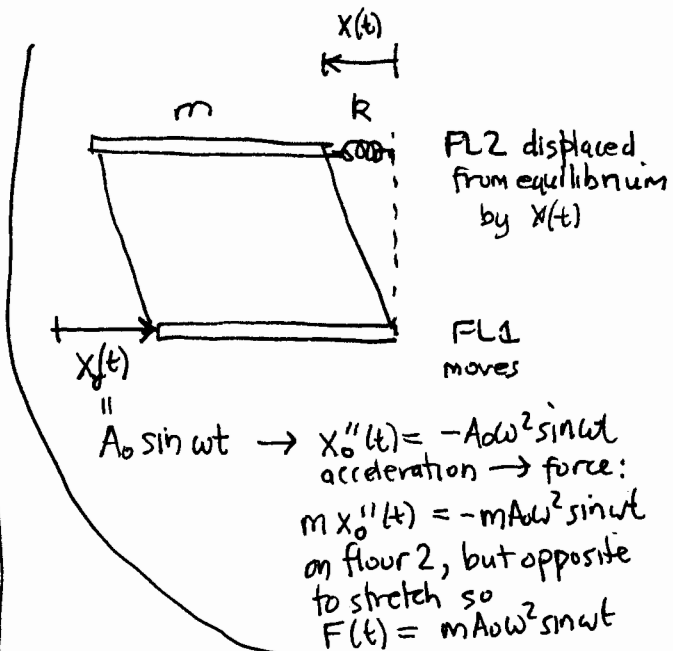 x(t)
m k
FL2 displaced
from equilibrium
by x(t)
FL1
moves
x₀(t)
"
A₀ sin ωt → x₀"(t) = -A₀ω² sin ωt
acceleration → force:
m x₀"(t) = -mA₀ω² sin ωt
on flour 2, but opposite
to stretch so
F(t) = mA₀ω² sin ωt